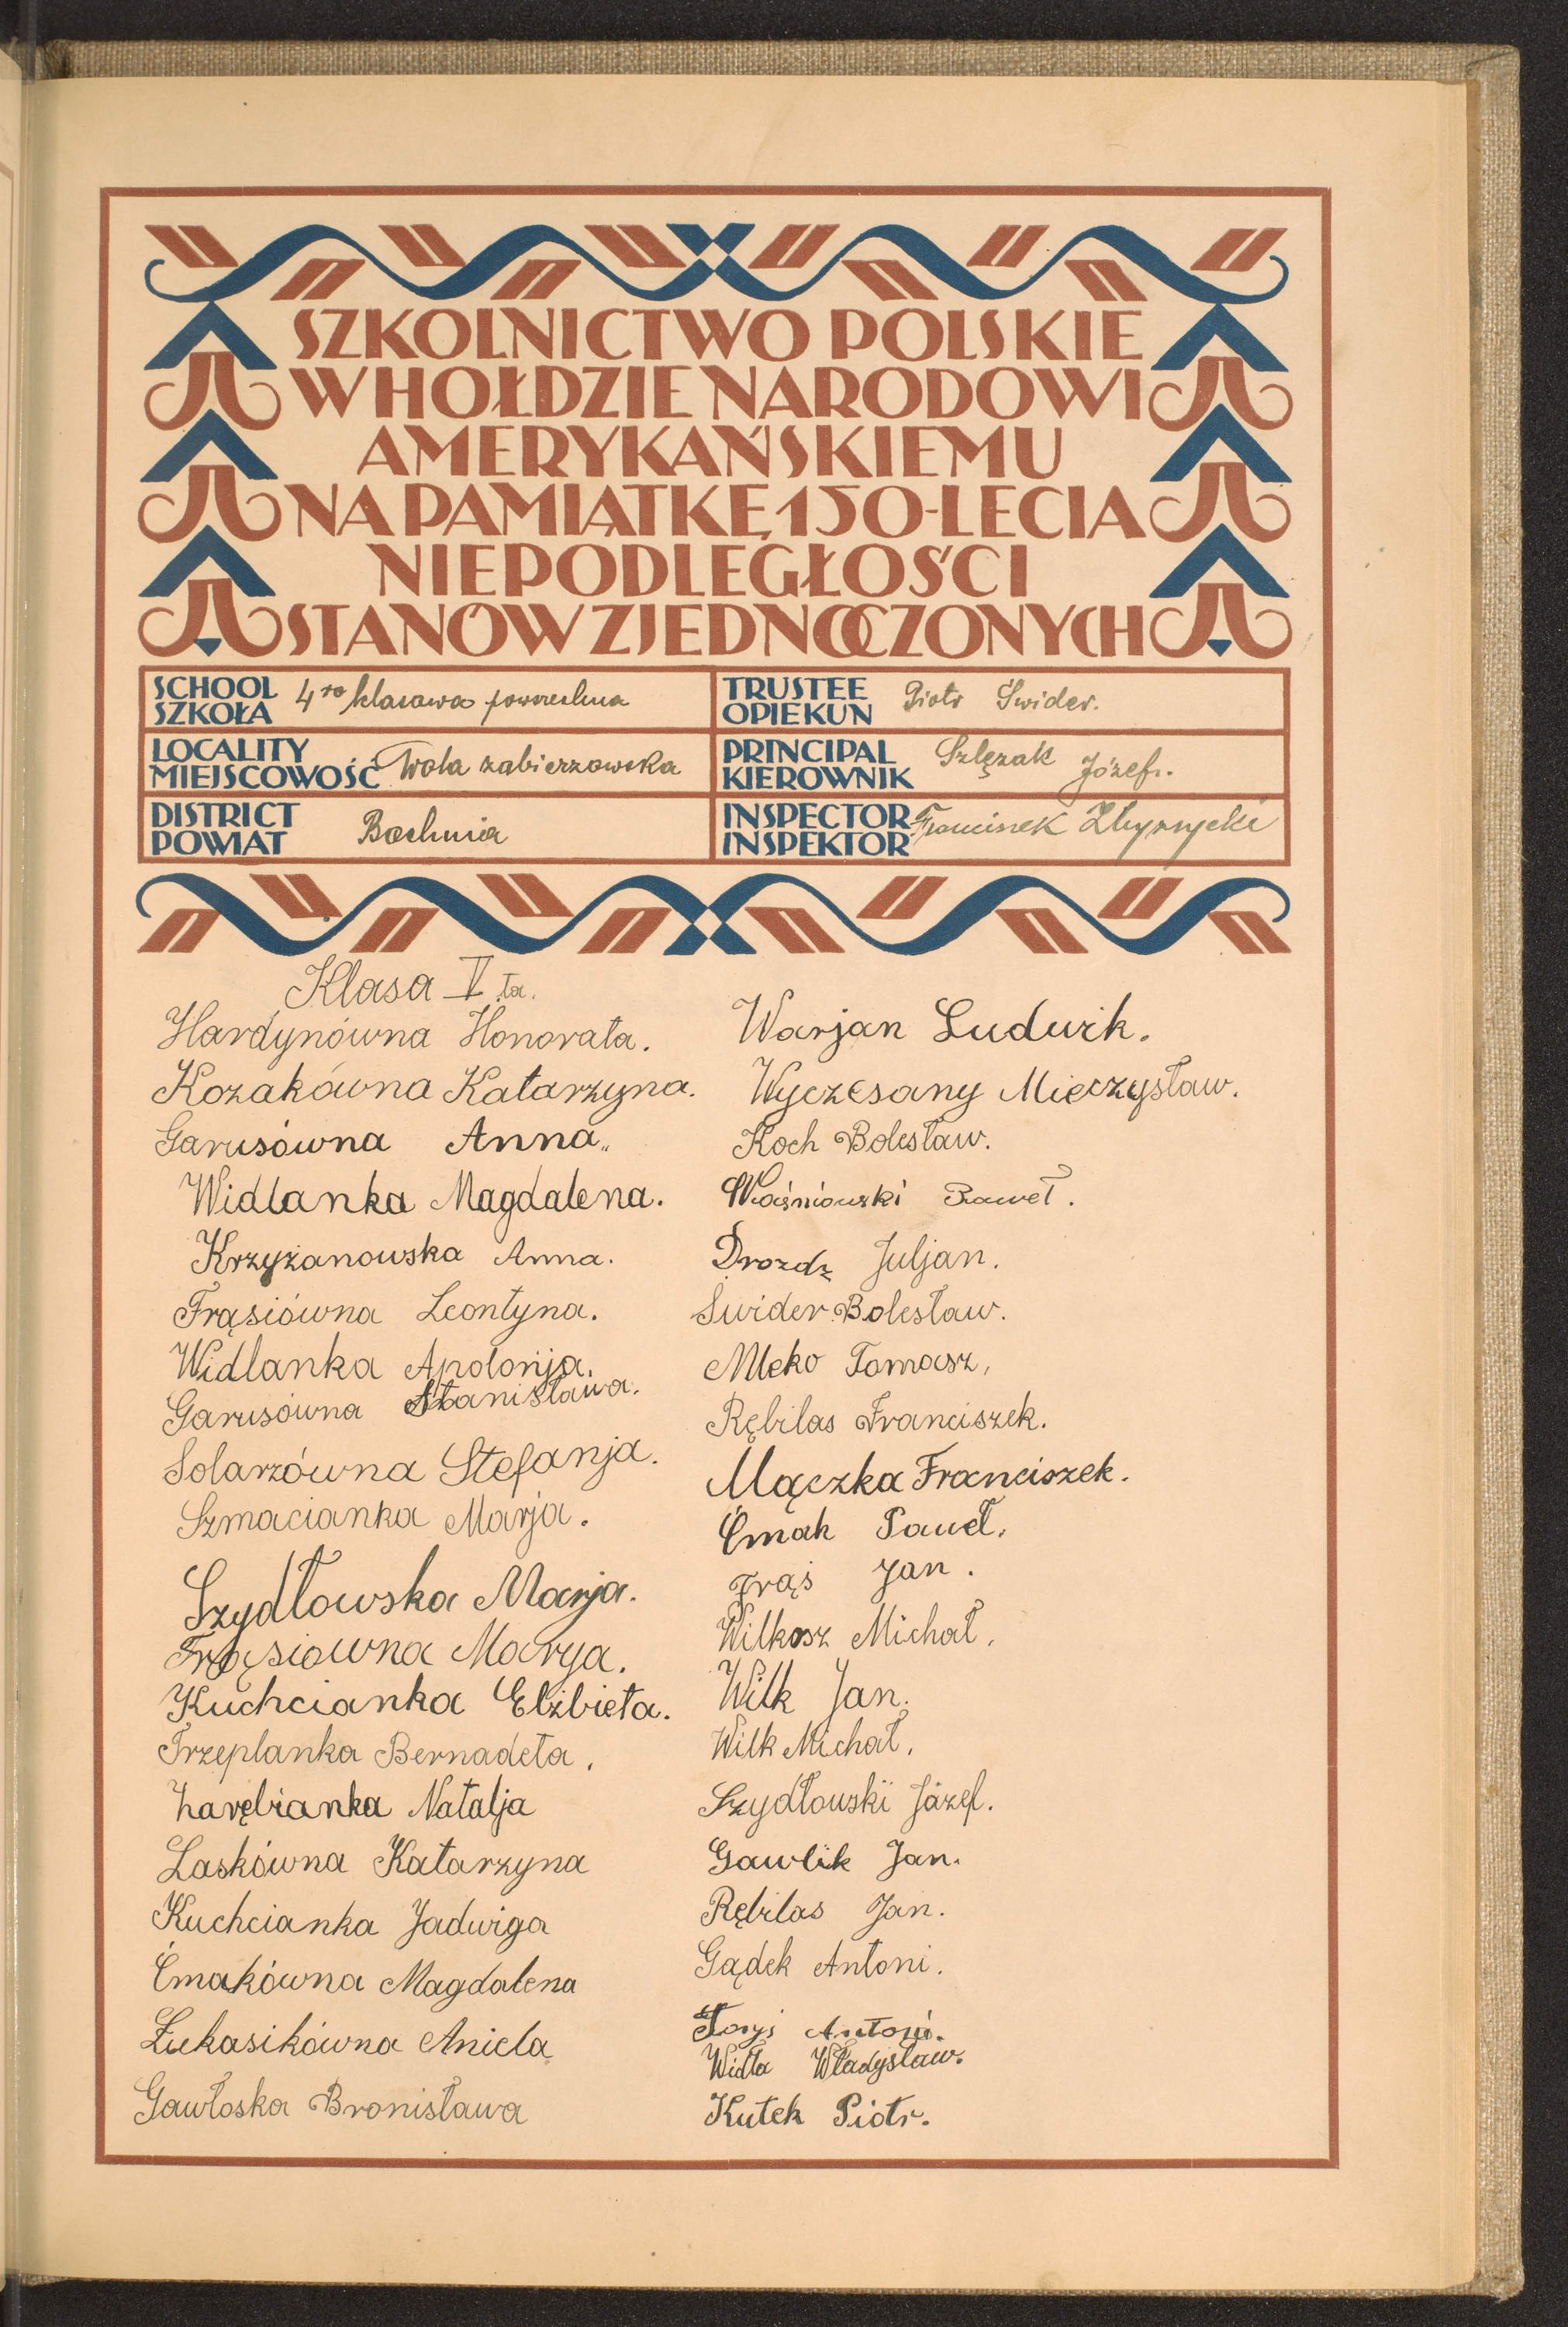 SZKOLNICTWO POLSKIE
W HOŁDZIE NARODOWI
AMERYKAŃSKIEMU
NA PAMIĄTKĘ 150-LECIA
NIEPODLEGŁOŚCI
STANÓW ZJEDNOCZONYCH
SCHOOL
SZKOŁA 4ro klasowa powszechna
LOCALITY
MIEJSCOWOŚĆ Wola zabierzowska
DISTRICT
POWIAT Bochnia
TRUSTEE
OPIEKUN Piotr Świder.
PRINCIPAL
KIEROWNIK Szlęzak Józef.
INSPECTOR
INSPEKTOR Franciszek
Klasa V ta.
Hardynówna Honorata.
Kozakówna Katarzyna.
Garusówna Anna.
Widlanka Magdalena.
Krzyżanowska Anna.
Frąsiówna Leontyna.
Widlanka Apolonja.
Garusówna Stanisława.
Solarzówna Stefanja.
Szmacianka Marja.
Szydłowska Marja.
Frąsiówna Marya.
Kuchcianka Elżbieta.
Trzeplanka Bernadeta.
Zarębianka Natalja
Laskówna Katarzyna
Kuchcianka Jadwiga
Ćmakówna Magdalena
Łukasikówna Aniela
Gawłoska Bronisława
Warjan Ludwik.
Wyczesany Mieczysław.
Koch Bolesław.
Waśniowski Paweł.
Drozdz Juljan.
Świder Bolesław.
Mleko Tomasz,
Rębilas Franciszek.
Mączka Franciszek.
Ćmak Paweł.
Frąś Jan.
Wilkosz Michał.
Wilk Jan.
Wilk Michał.
Szydłowski Józef.
Gawlik Jan.
Rębilas Jan.
Gądek Antoni.
Antoni.
Widła Władysław.
Kutek Piotr.